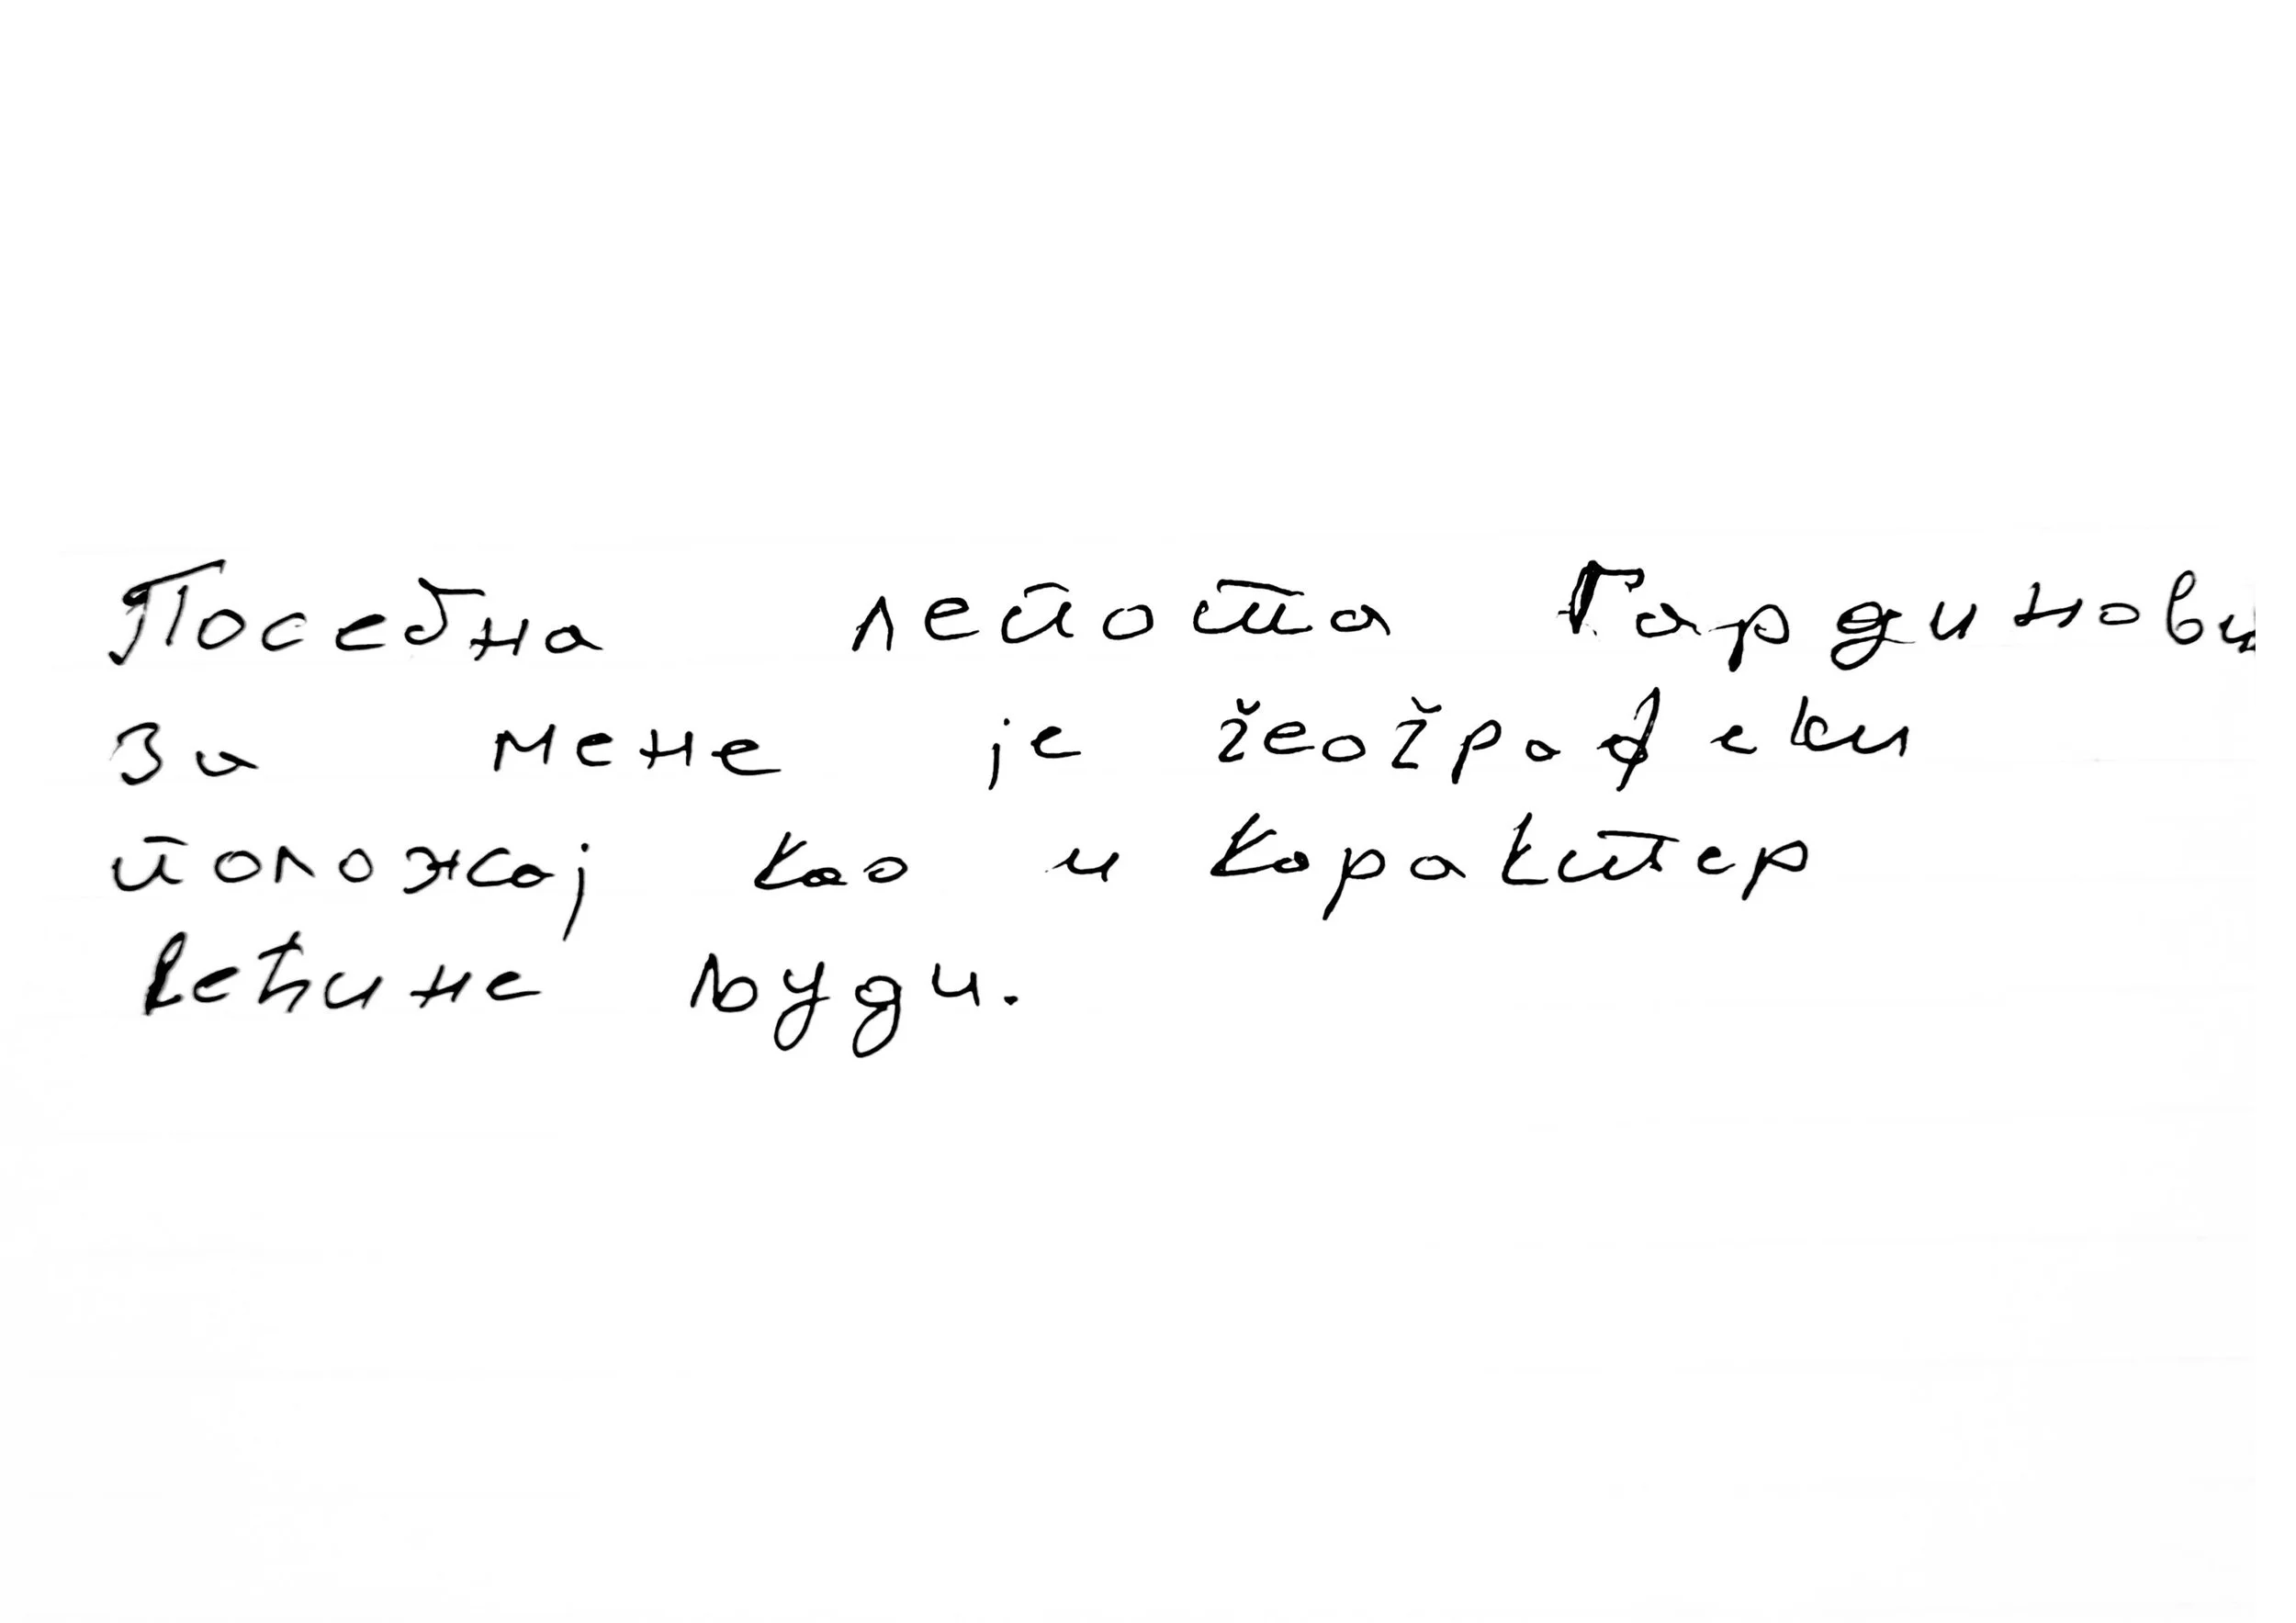 Посебна лепота Гардинови
за мене је географски
положај као и карактер
већине људи.